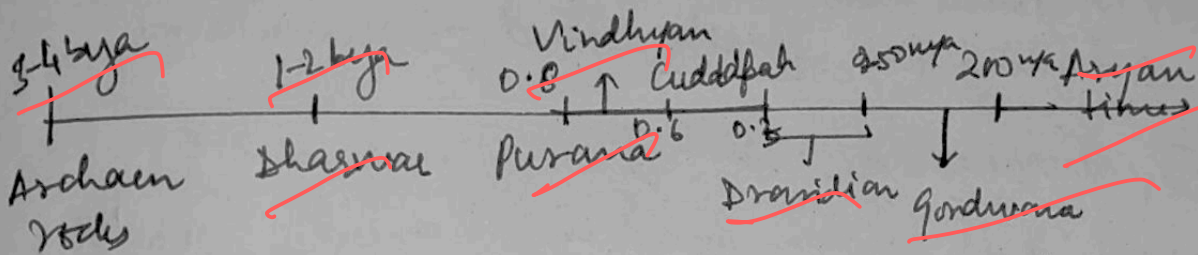 3-4 bya 1-2 bya 0.8 Vindhyan Cuddapah 250 mya 200 mya Aryan
time
0.6 0.3
Archaen Dharwar Purana
rocks Dravidian Gondwana